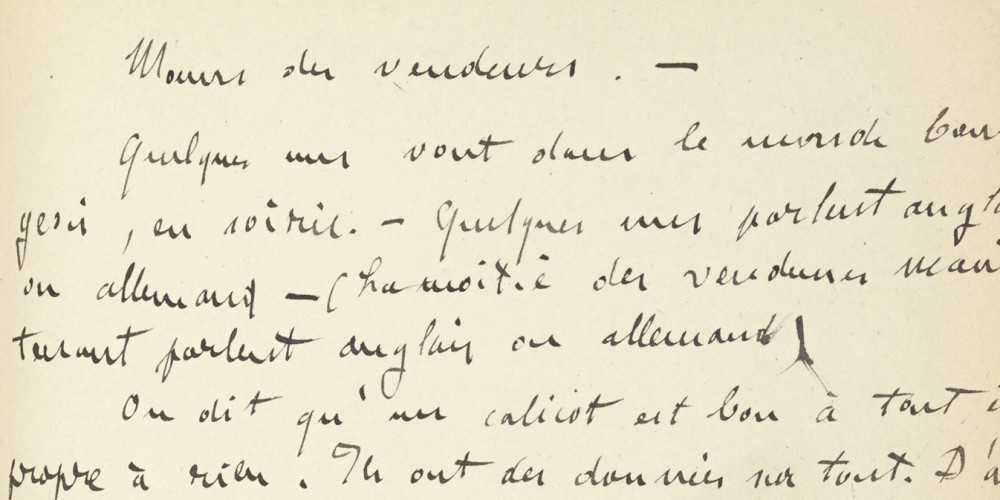 Mœurs des vendeurs. —
Quelques uns vont dans le monde bour
geois, en soirée. — Quelques uns parlent angla
ou allemand — (La moitié des vendeurs main
tenant parlent anglais ou allemand)
On dit qu'un calicot est bon à tout
propre à rien. Ils ont des données sur tout. D'a